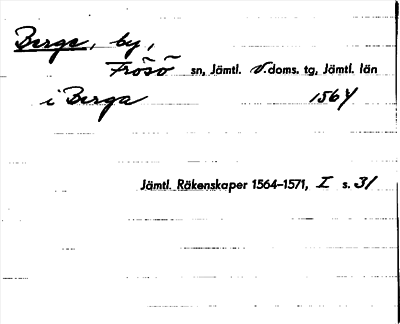 Berge, by,
Frösö sn, Jämtl. V. doms. tg, Jämtl. län
i Berga 1564
Jämtl. Räkenskaper 1564–1571, I s. 31